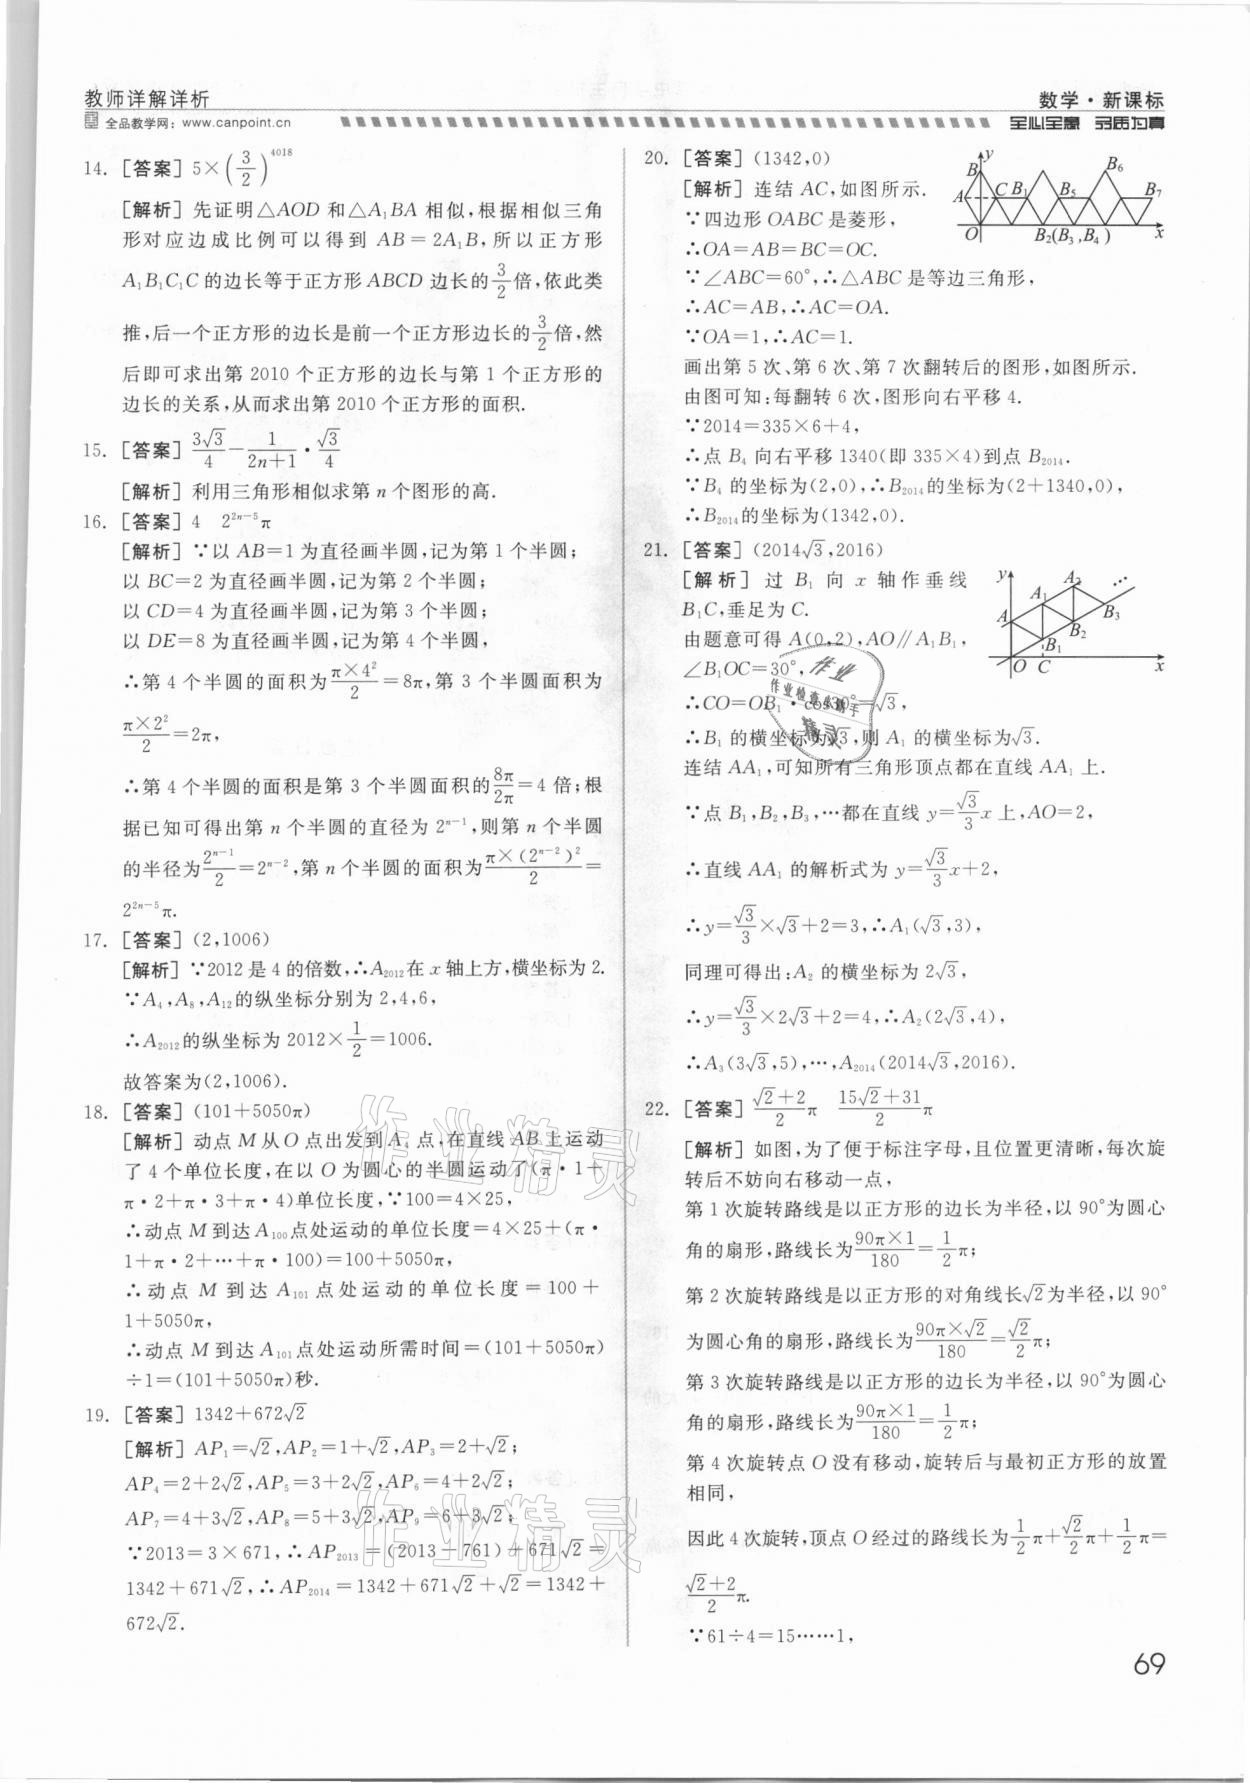 教师详解详析
数学·新课标
全品教学网：www.canpoint.cn
全心全意 品质为真
14. [答案] 5×(3/2)^4018
[解析] 先证明△AOD 和△A₁BA 相似，根据相似三角
形对应边成比例可以得到 AB=2A₁B，所以正方形
A₁B₁C₁C 的边长等于正方形 ABCD 边长的3/2倍，依此类
推，后一个正方形的边长是前一个正方形边长的3/2倍，然
后即可求出第 2010 个正方形的边长与第 1 个正方形的
边长的关系，从而求出第 2010 个正方形的面积.
15. [答案] 3√3/4－1/(2n+1)·√3/4
[解析] 利用三角形相似求第 n 个图形的高.
16. [答案] 4　2^(2n−5)π
[解析] ∵以 AB=1 为直径画半圆，记为第 1 个半圆；
以 BC=2 为直径画半圆，记为第 2 个半圆；
以 CD=4 为直径画半圆，记为第 3 个半圆；
以 DE=8 为直径画半圆，记为第 4 个半圆，
∴第 4 个半圆的面积为(π×4²)/2=8π，第 3 个半圆面积为
(π×2²)/2=2π，
∴第 4 个半圆的面积是第 3 个半圆面积的8π/2π=4 倍；根
据已知可得出第 n 个半圆的直径为 2^(n−1)，则第 n 个半圆
的半径为2^(n−1)/2=2^(n−2)，第 n 个半圆的面积为(π×(2^(n−2))²)/2=
2^(2n−5)π.
17. [答案] (2,1006)
[解析] ∵2012 是 4 的倍数，∴A₂₀₁₂在 x 轴上方，横坐标为 2.
∵A₄,A₈,A₁₂的纵坐标分别为 2,4,6，
∴A₂₀₁₂的纵坐标为 2012×1/2=1006.
故答案为(2,1006).
18. [答案] (101+5050π)
[解析] 动点 M 从 O 点出发到 A₄ 点，在直线 AB 上运动
了 4 个单位长度，在以 O 为圆心的半圆运动了(π·1+
π·2+π·3+π·4)单位长度，∵100=4×25，
∴动点 M 到达 A₁₀₀点处运动的单位长度=4×25+(π·
1+π·2+…+π·100)=100+5050π，
∴动点 M 到达 A₁₀₁点处运动的单位长度=100+
1+5050π，
∴动点 M 到达 A₁₀₁点处运动所需时间=(101+5050π)
÷1=(101+5050π)秒.
19. [答案] 1342+672√2
[解析] AP₁=√2,AP₂=1+√2,AP₃=2+√2；
AP₄=2+2√2,AP₅=3+2√2,AP₆=4+2√2；
AP₇=4+3√2,AP₈=5+3√2,AP₉=6+3√2；
∵2013=3×671，∴AP₂₀₁₃=(2013-761)+671√2=
1342+671√2，∴AP₂₀₁₄=1342+671√2+√2=1342+
672√2.
20. [答案] (1342,0)
[解析] 连结 AC，如图所示.
∵四边形 OABC 是菱形，
∴OA=AB=BC=OC.
∵∠ABC=60°，∴△ABC 是等边三角形，
∴AC=AB，∴AC=OA.
∵OA=1，∴AC=1.
画出第 5 次、第 6 次、第 7 次翻转后的图形，如图所示.
由图可知：每翻转 6 次，图形向右平移 4.
∵2014=335×6+4，
∴点 B₄ 向右平移 1340(即 335×4)到点 B₂₀₁₄.
∵B₄ 的坐标为(2,0)，∴B₂₀₁₄的坐标为(2+1340,0)，
∴B₂₀₁₄的坐标为(1342,0).
y
B
B₆
A
C B₁ B₅ B₇
O B₂(B₃,B₄) x
21. [答案] (2014√3,2016)
[解析] 过 B₁ 向 x 轴作垂线
B₁C，垂足为 C.
由题意可得 A(0,2)，AO∥A₁B₁，
∠B₁OC=30°，
∴CO=OB₁·cos30°=√3，
∴B₁ 的横坐标为√3，则 A₁ 的横坐标为√3.
连结 AA₁，可知所有三角形顶点都在直线 AA₁ 上.
∵点 B₁,B₂,B₃,…都在直线 y=√3/3x 上，AO=2，
∴直线 AA₁ 的解析式为 y=√3/3x+2，
∴y=√3/3×√3+2=3，∴A₁(√3,3)，
同理可得出：A₂ 的横坐标为 2√3，
∴y=√3/3×2√3+2=4，∴A₂(2√3,4)，
∴A₃(3√3,5)，…，A₂₀₁₄(2014√3,2016).
y A₂ …
A₁
A B₃
B₂
B₁
O C x
22. [答案] (√2+2)/2π　(15√2+31)/2π
[解析] 如图，为了便于标注字母，且位置更清晰，每次旋
转后不妨向右移动一点，
第 1 次旋转路线是以正方形的边长为半径，以 90°为圆心
角的扇形，路线长为(90π×1)/180=1/2π；
第 2 次旋转路线是以正方形的对角线长√2为半径，以 90°
为圆心角的扇形，路线长为(90π×√2)/180=√2/2π；
第 3 次旋转路线是以正方形的边长为半径，以 90°为圆心
角的扇形，路线长为(90π×1)/180=1/2π；
第 4 次旋转点 O 没有移动，旋转后与最初正方形的放置
相同，
因此 4 次旋转，顶点 O 经过的路线长为1/2π+√2/2π+1/2π=
(√2+2)/2π.
∵61÷4=15……1，
69
作业
作业检查小帮手
精灵
作业精灵
作业精灵